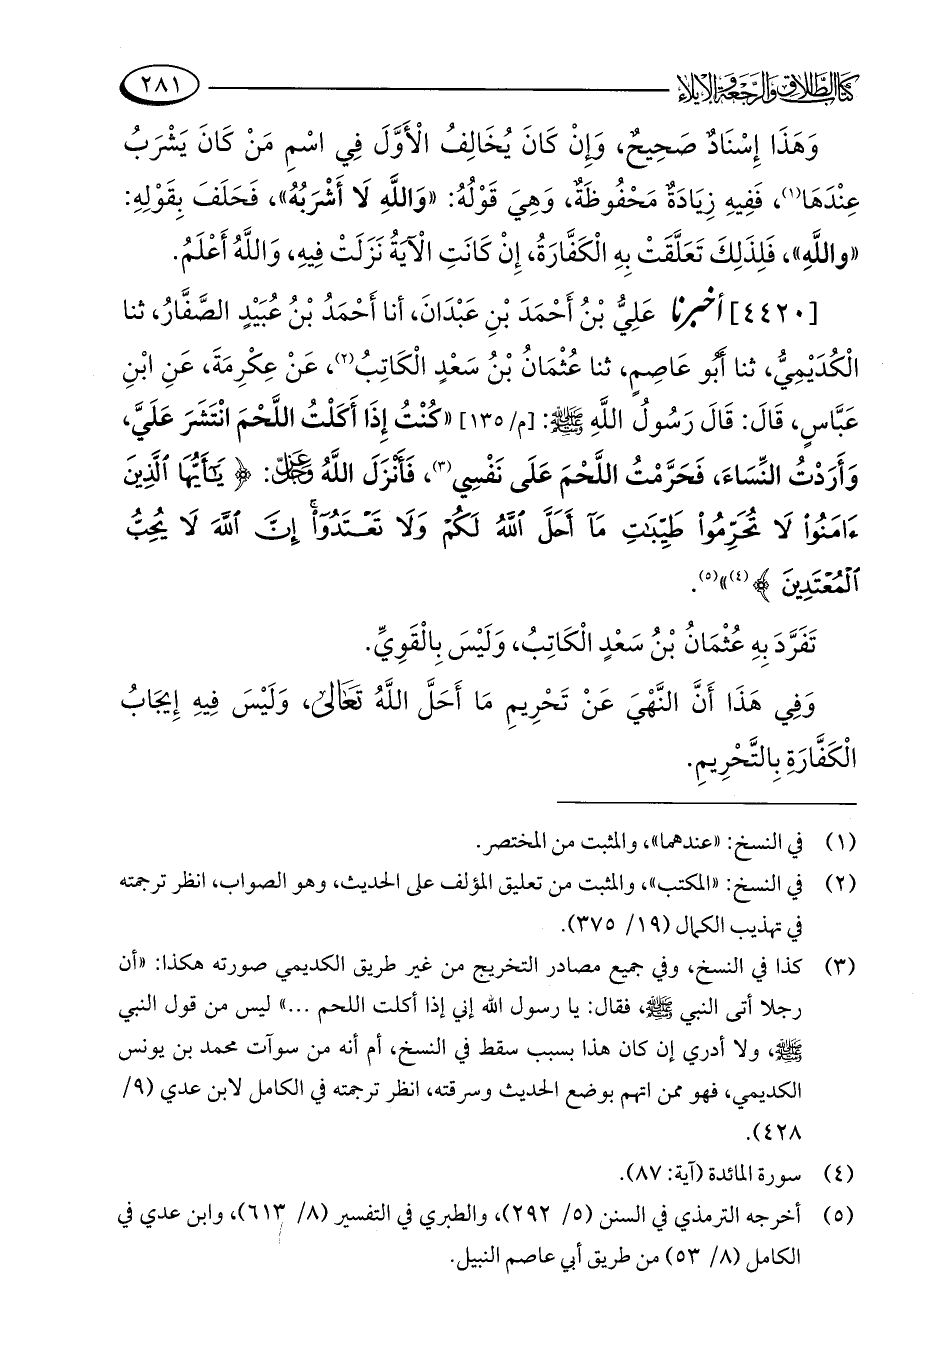 كتاب الطلاق والرجعة والإيلاء
٢٨١
وَهَذَا إِسْنَادٌ صَحِيحٌ، وَإِنْ كَانَ يُخَالِفُ الْأَوَّلَ فِي اسْمِ مَنْ كَانَ يَشْرَبُ
عِنْدَهَا(١)، فَفِيهِ زِيَادَةٌ مَحْفُوظَةٌ، وَهِيَ قَوْلُهُ: «وَاللَّهِ لَا أَشْرَبُهُ»، فَحَلَفَ بِقَوْلِهِ:
«وَاللَّهِ»، فَلِذَلِكَ تَعَلَّقَتْ بِهِ الْكَفَّارَةُ، إِنْ كَانَتِ الْآيَةُ نَزَلَتْ فِيهِ، وَاللَّهُ أَعْلَمُ.
[٤٤٢٠] أخبرنا عَلِيُّ بْنُ أَحْمَدَ بْنِ عَبْدَانَ، أنا أَحْمَدُ بْنُ عُبَيْدٍ الصَّفَّارُ، ثنا
الْكُدَيْمِيُّ، ثنا أَبُو عَاصِمٍ، ثنا عُثْمَانُ بْنُ سَعْدٍ الْكَاتِبُ(٢)، عَنْ عِكْرِمَةَ، عَنِ ابْنِ
عَبَّاسٍ، قَالَ: قَالَ رَسُولُ اللَّهِ ﷺ: [م/ ١٣٥] «كُنْتُ إِذَا أَكَلْتُ اللَّحْمَ انْتَشَرَ عَلَيَّ،
وَأَرَدْتُ النِّسَاءَ، فَحَرَّمْتُ اللَّحْمَ عَلَى نَفْسِي(٣)، فَأَنْزَلَ اللَّهُ عَزَّ وَجَلَّ: ﴿ يَٰٓأَيُّهَا ٱلَّذِينَ
ءَامَنُوا۟ لَا تُحَرِّمُوا۟ طَيِّبَٰتِ مَآ أَحَلَّ ٱللَّهُ لَكُمْ وَلَا تَعْتَدُوٓا۟ ۚ إِنَّ ٱللَّهَ لَا يُحِبُّ
ٱلْمُعْتَدِينَ ﴾(٤)»(٥).
تَفَرَّدَ بِهِ عُثْمَانُ بْنُ سَعْدٍ الْكَاتِبُ، وَلَيْسَ بِالْقَوِيِّ.
وَفِي هَذَا أَنَّ النَّهْيَ عَنْ تَحْرِيمِ مَا أَحَلَّ اللَّهُ تَعَالَى، وَلَيْسَ فِيهِ إِيجَابُ
الْكَفَّارَةِ بِالتَّحْرِيمِ.
(١) في النسخ: «عندهما»، والمثبت من المختصر.
(٢) في النسخ: «المكتب»، والمثبت من تعليق المؤلف على الحديث، وهو الصواب، انظر ترجمته
في تهذيب الكمال (١٩/ ٣٧٥).
(٣) كذا في النسخ، وفي جميع مصادر التخريج من غير طريق الكديمي صورته هكذا: «أن
رجلا أتى النبي ﷺ، فقال: يا رسول الله إني إذا أكلت اللحم ...» ليس من قول النبي
ﷺ، ولا أدري إن كان هذا بسبب سقط في النسخ، أم أنه من سوآت محمد بن يونس
الكديمي، فهو ممن اتهم بوضع الحديث وسرقته، انظر ترجمته في الكامل لابن عدي (٩/
٤٢٨).
(٤) سورة المائدة (آية: ٨٧).
(٥) أخرجه الترمذي في السنن (٥/ ٢٩٢)، والطبري في التفسير (٨/ ٦١٣)، وابن عدي في
الكامل (٨/ ٥٣) من طريق أبي عاصم النبيل.